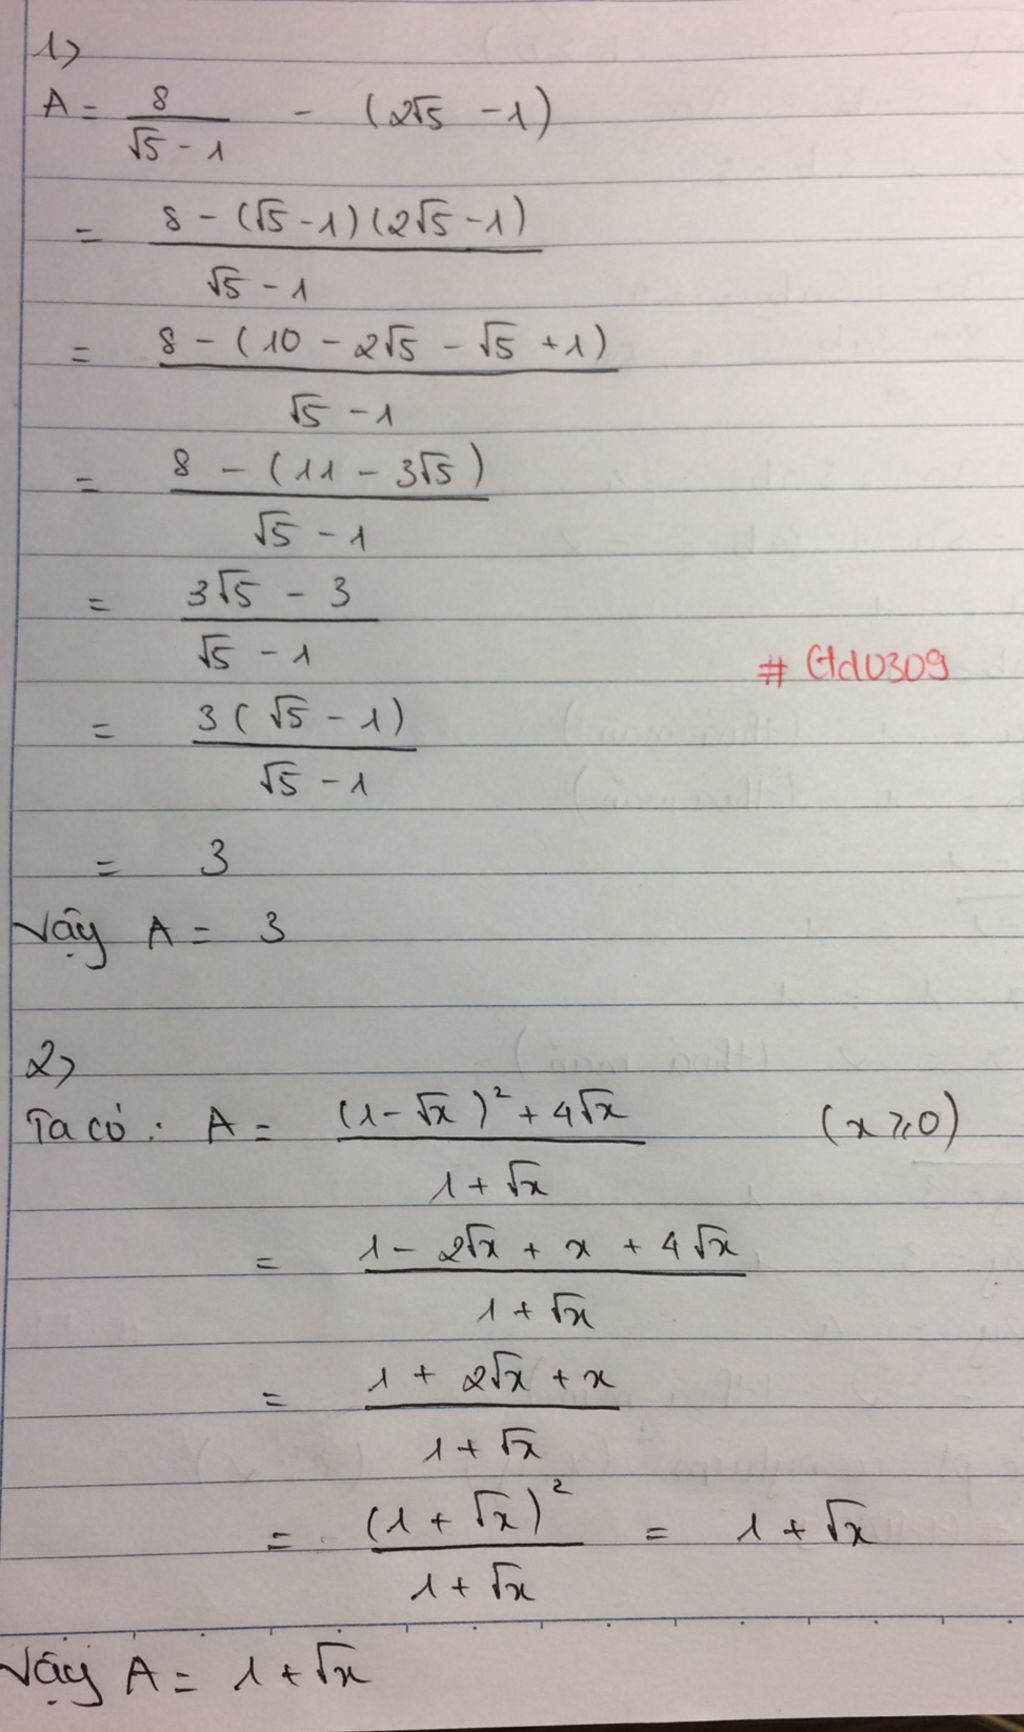 1)
A = 8/(√5 - 1) - (2√5 - 1)
= (8 - (√5 - 1)(2√5 - 1))/(√5 - 1)
= (8 - (10 - 2√5 - √5 + 1))/(√5 - 1)
= (8 - (11 - 3√5))/(√5 - 1)
= (3√5 - 3)/(√5 - 1)
# Gtd0309
= (3(√5 - 1))/(√5 - 1)
= 3
Vậy A = 3
2)
Ta có: A = ((1 - √x)² + 4√x)/(1 + √x) (x ≥ 0)
= (1 - 2√x + x + 4√x)/(1 + √x)
= (1 + 2√x + x)/(1 + √x)
= (1 + √x)²/(1 + √x) = 1 + √x
Vậy A = 1 + √x